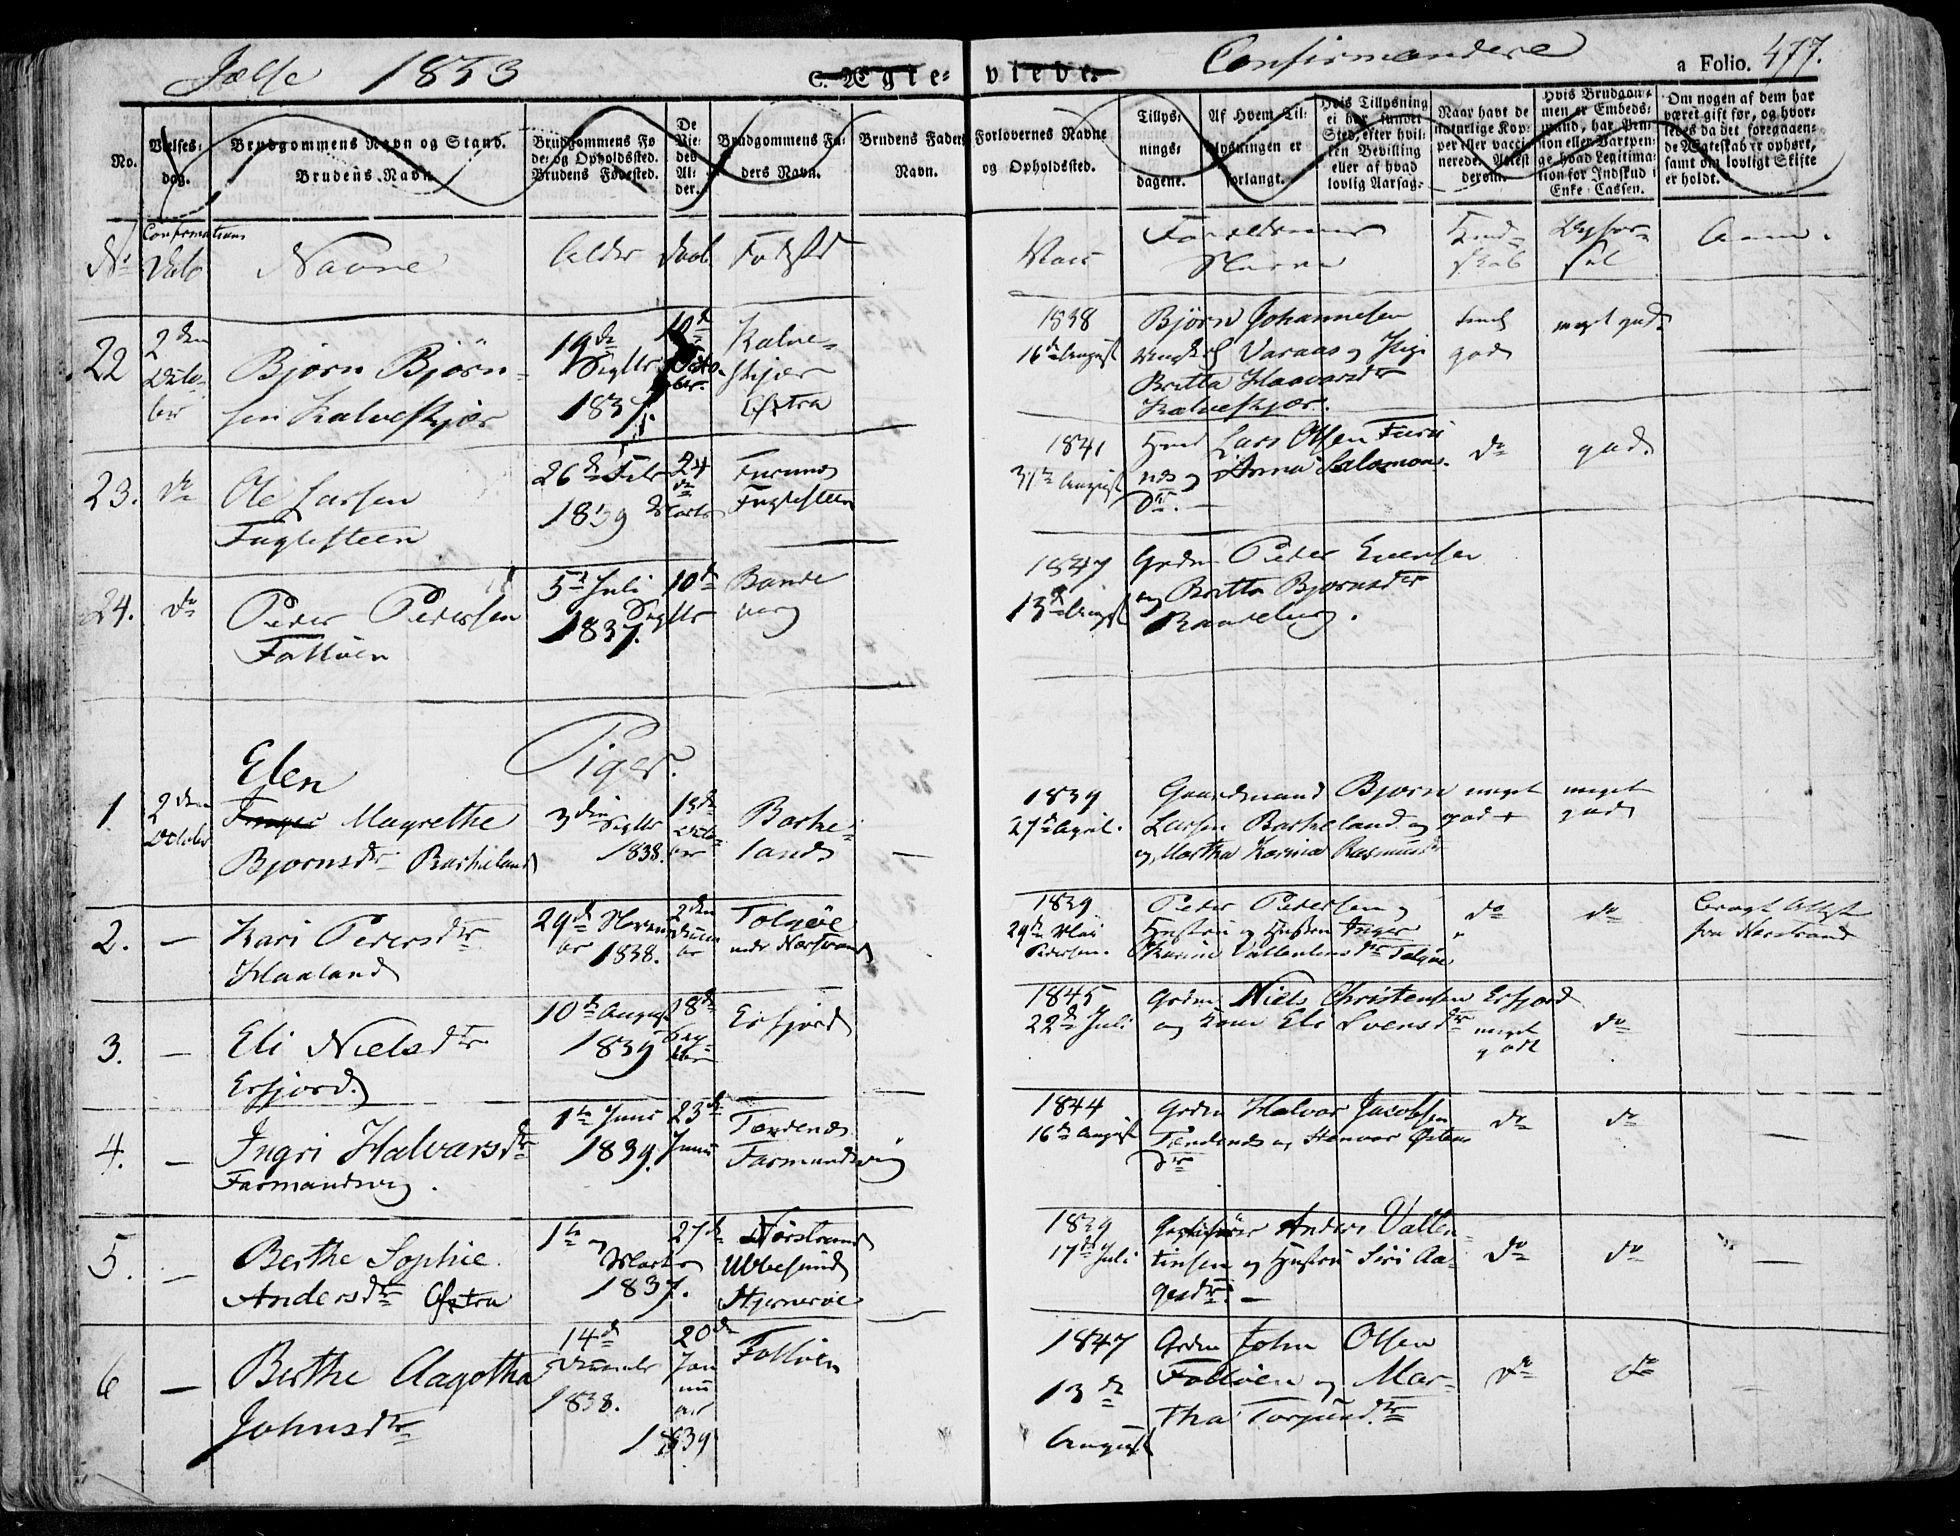 Jelse 1853
C. Ægte-
viede.
Confirmandere
a Folio. 477.
No.
Vielses-
dag.
Brudgommens Navn og Stand.
Brudens Navn.
Brudgommens Fø
de- og Opholdssted.
Brudens Fødested.
De
Vie-
des
Al-
der.
Brudgommens Fa-
ders Navn.
Brudens Faders
Navn.
Forlovernes Navne
og Opholdssted.
Tillys-
nings-
dagene.
Af Hvem Til-
lysningen er
forlangt.
Hvis Tillysning
ei har fundet
Sted, efter hvil-
ken Bevilling
eller af hvad
lovlig Aarsag.
Naar havt de
naturlige Kop-
per eller vacci-
nerede. Attest
derom.
Hvis Brudgom-
men er Embeds-
mand, har Pen-
sion eller Vartpen-
ge hvad Legitima-
tion for Indskud i
Enke-Cassen.
Om nogen af dem har
været gift før, og hvor-
ledes da det foregaaen-
de Ægteskab er ophørt,
samt om lovligt Skifte
er holdt.
No
Confirmations
Dato
Navne
Alder
Daab
Fødested
Vacc
Forældrenes
Navne
Kund-
skab
Opfør-
sel
Anm.
22
2den
Octo-
ber
Bjørn Bjørn-
sen Kalveskjær
19de
Septbr
1837.
10d
Octo-
ber.
Kalve-
skjær
Østra
1838
16de August
Bjørn Johannesen
Varaas og Pige
Britta Haavarsdtr
Kalveskjær.
god
meget god
23.
do
Ole Larsen
Fuglesteen
26d Febr
1839
24
de
Marts
Furunes
Fuglesteen
1841
31te August
Lars Olsen Furu
næs og Anna Salomons
Dtr.
do
god
24.
do
Peder Pedersen
Foldøen
5d Juli
1837.
10d
Septbr
Bande
berg
1847
13de August
Grdm Peder Evensen
og Britta Bjørnsdtr
Bandeberg.
Piger.
1.
2den
October
Elen
Inger Magrethe
Bjørnsdtr Barkeland
3die Septbr
1838.
13de
Octo-
ber
Barke-
land
1839
27de April.
Gaardmand Bjørn
Larsen Barkeland og
og Martha Karina Rasmusdtr
meget
god +
meget
god
2.
Kari Pedersdtr
Haaland
29d Novem
ber 1838.
2den
Decem
ber
Tolgøe
under Nærstrand
1839
29de Mai
Pedersen.
Peder Pedersen og
Hustru og Hustru Inger
Karine Vallentinsdtr Talgøe
do
do
Bragt Attest
fra Nærstrand
3.
Eli Nielsdtr
Erfjord.
10d August
1839
18d
Sep-
tbr
Erfjord
1845
22d Juli
Grdm Niels Christensen
og Kone Eli Svensdtr
Erfjord
meget
godt
do
4.
Ingri Halvarsdtr
Farmandsvig.
1te Juni
1839.
23d
Juni
Tændenes
Farmandsvig
1844
16de August
Grdm Halvor Jacobsen
Tændenes og Østens
Dtr
do
do
5.
Berthe Sophie
Andersdtr Østra
1te
Marts
1837.
27d
Nærstrand
Ubbesund
Hjernerøe
1839
17de Juli
Anders Vallen-
tinsen og Hustru Siri Aa-
gesdtr.
do
do
6
Berthe Aagotha
Johnsdtr
14d
Decembr
1838.
20d
Jan
nu
ar
1839
Foldøen
1847
13de
August
Grdm John Olsen
Foldøen og Mar-
tha Torgrimsdtr
do
do